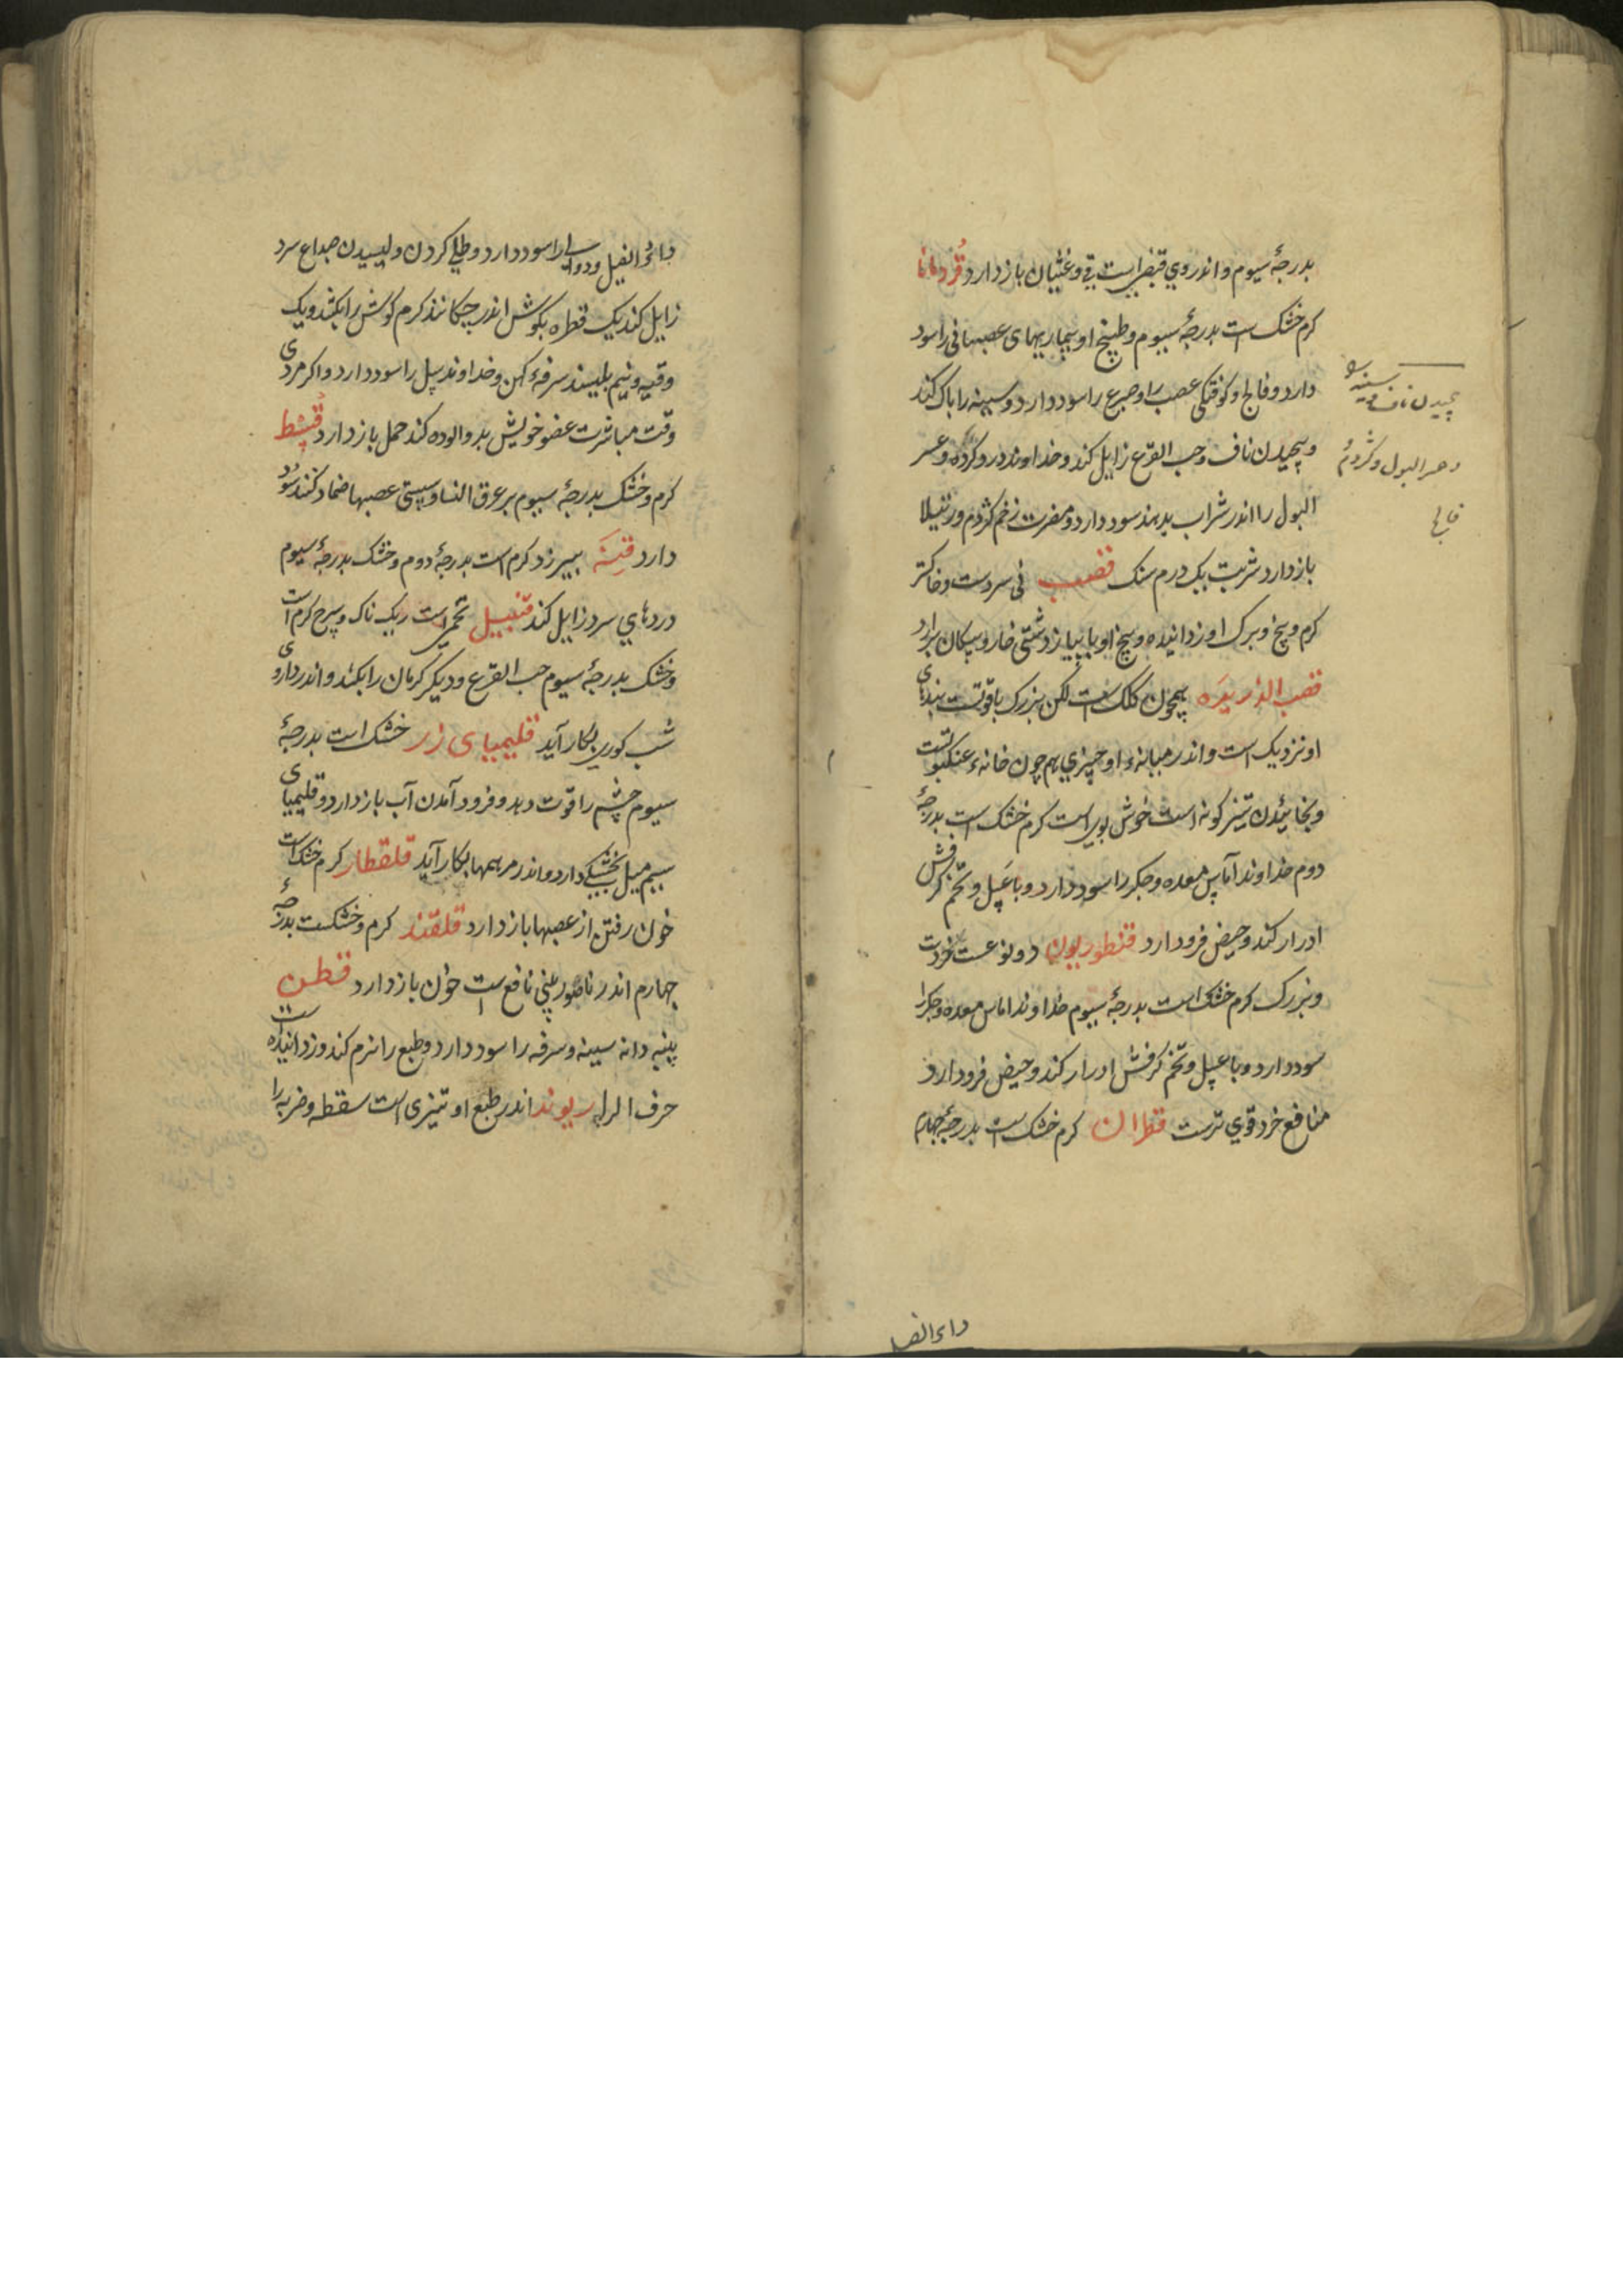 بدرجۀ سیوم و اندر وی قبضی است قی و غثیان باز دارد قُردمانا
کرم خشک است بدرجۀ سیوم و طبیخ او بیماریهای عصبهانی را سود
دارد و فالج و کوفتکی عصب را و صرع را سود دارد و سینه را باک کند
و پیچیدن ناف و حب القرع زایل کند و خداوند درد کرده و عسر
البول را اندر شراب بدهند سود دارد و مضرت زخم کژدم و رتیلا
باز دارد شربت یک درم سنک قصب نی سردست و خاکتر
کرم و بیخ و برک او زداینده و بیخ او با پیاز دشتی خار و پیکان برارد
قصب الذریره همچون کلک است لکن بزرک باقوتست بندهای
او نزدیک است و اندر میانۀ او چیزی هم چون خانهء عنکبوتست
و بخائیدن تیز کونه است خوش بوی است کرم خشک است بدرجۀ
دوم خداوند آماس معده و جکر را سود دارد و با عسل و تخم کرفش
ادرار کند و حیض فرود ارد قنطوریون دو نوعست خردت
و بزرک کرم خشک است بدرجۀ سیوم خداوند اماس معده و جکرا
سود دارد و با عسل و تخم کرفش ادرار کند و حیض فرود ارد
منافع خرد قوی ترست قطران کرم خشک است بدرجۀ جهارم
پیچیدن ناف سینه
و عسر البول و کژدم
فالج
داء الفیل
داءُ الفیل و دوالی را سود دارد و طلی کردن و لیسیدن صداع سرد
زایل کند یک قطره بکوش اندر چکانند کرم کوش را بکشد و یک
وقیه و نیم بلیسند سرفۀ کهن و خداوند سل را سود دارد و اکر مردی
وقت مباشرت عضو خویش بدو الوده کند حمل باز دارد قُسُط
کرم و خشک بدرجۀ سیوم بر عرق النسا و سستی عصبها ضماد کنند سود
دارد قنّه بیرزد کرم است بدرجۀ دوم و خشک بدرجۀ سیوم
دردهای سرد زایل کند قنبیل تخمی است ریک ناک و سرخ کرم است
و خشک بدرجۀ سیوم حب القرع و دیکر کرمان را بکشد و اندر داروی
شب کوری بکار آید قلیمیای زر خشک است بدرجۀ
سیوم چشم را قوت دهد و فرود آمدن آب باز دارد و قلیمیای
سیم میل بخشکی دارد و اندر مرهمها بکار آید قلقطار کرم خشک است
خون رفتن از عصبها باز دارد قلقند کرم و خشکست بدرجۀ
جهارم اندر ناصور بینی نافع است خون باز دارد قطن
پنبه دانه سینه و سرفه را سود دارد و طبع را نرم کند و زداینده است
حرف الرا ریوند اندر طبع او تیزی است سقطه و ضربه را